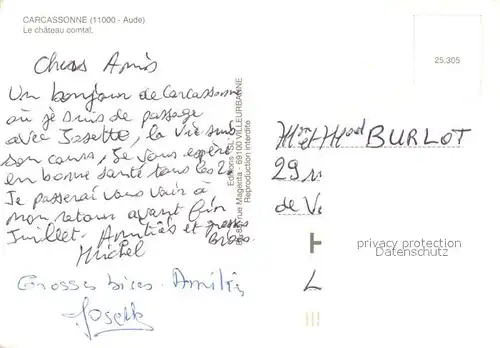 CARCASSONNE (11000 - Aude)
Le château comtal.
25.305
Chers Amis
Un bonjour de Carcassonne
où je suis de passage
avec Josette, la vie suit
son cours, Je vous espère
en bonne santé tous les 2.
Je passerai vous voir à
mon retour avant fin
Juillet. Amitiés et grosses
bises.
Michel
Grosses bises. Amitiés
Josette
Magenta - 69100 VILLEURBANNE
Reproduction interdite
Mr et Mad BURLOT
29
de
privacy protection
Datenschutz
L